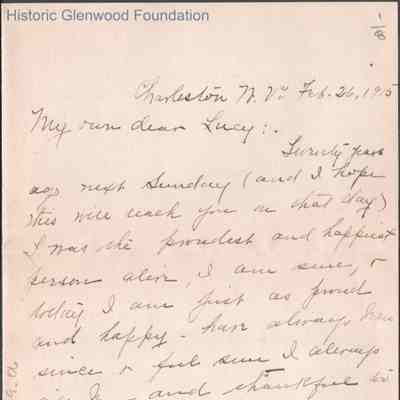 Historic Glenwood Foundation
1/8
Charleston W. Va Feb. 26, 1915
My own dear Lucy:
Twenty years
ago next Sunday (and I hope
this will reach you on that day)
I was the proudest and happiest
person alive, I am sure, &
today I am just as proud
and happy - have always been
since & feel sure I always
and thankful